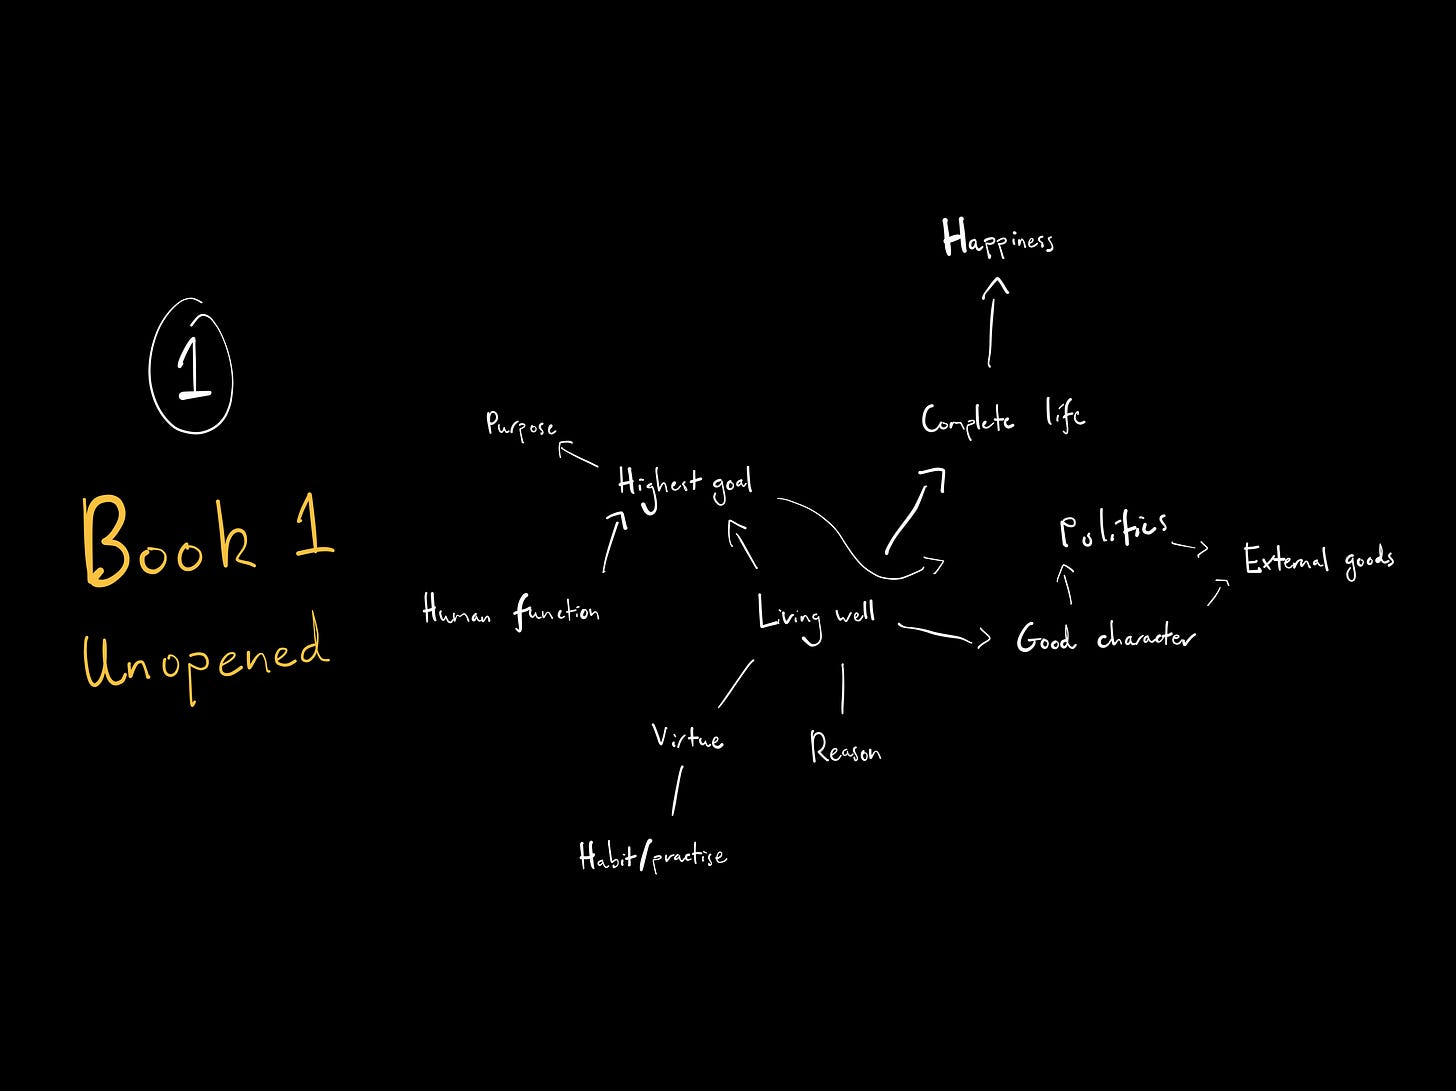 1
Book 1
Unopened
Happiness
Complete life
Purpose
Highest goal
Politics
External goods
Human function
Living well
Good character
Virtue
Reason
Habit/practise